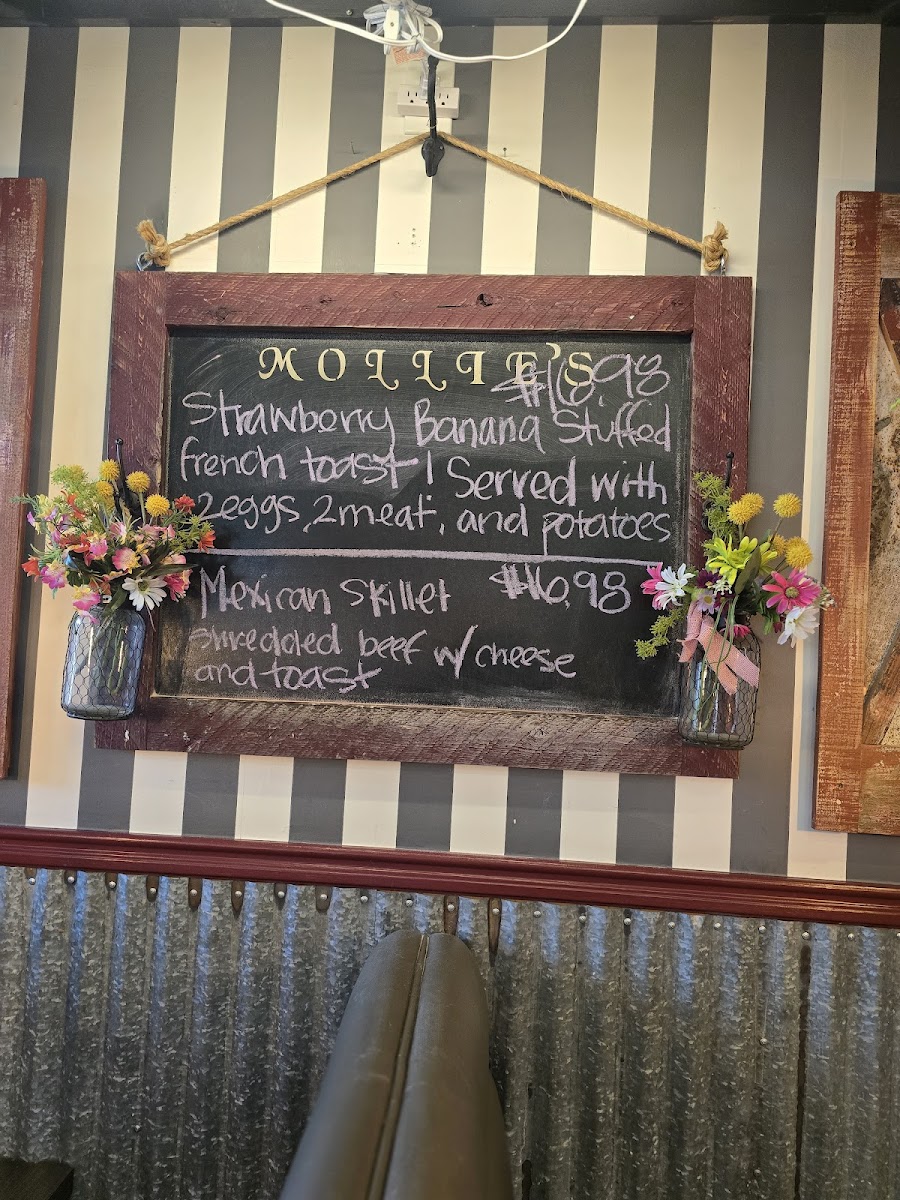 MOLLIE'S
$16.98
Strawberry Banana Stuffed
french toast | Served with
2eggs, 2meat, and potatoes
Mexican Skillet $16.98
shredded beef w/ cheese
and toast